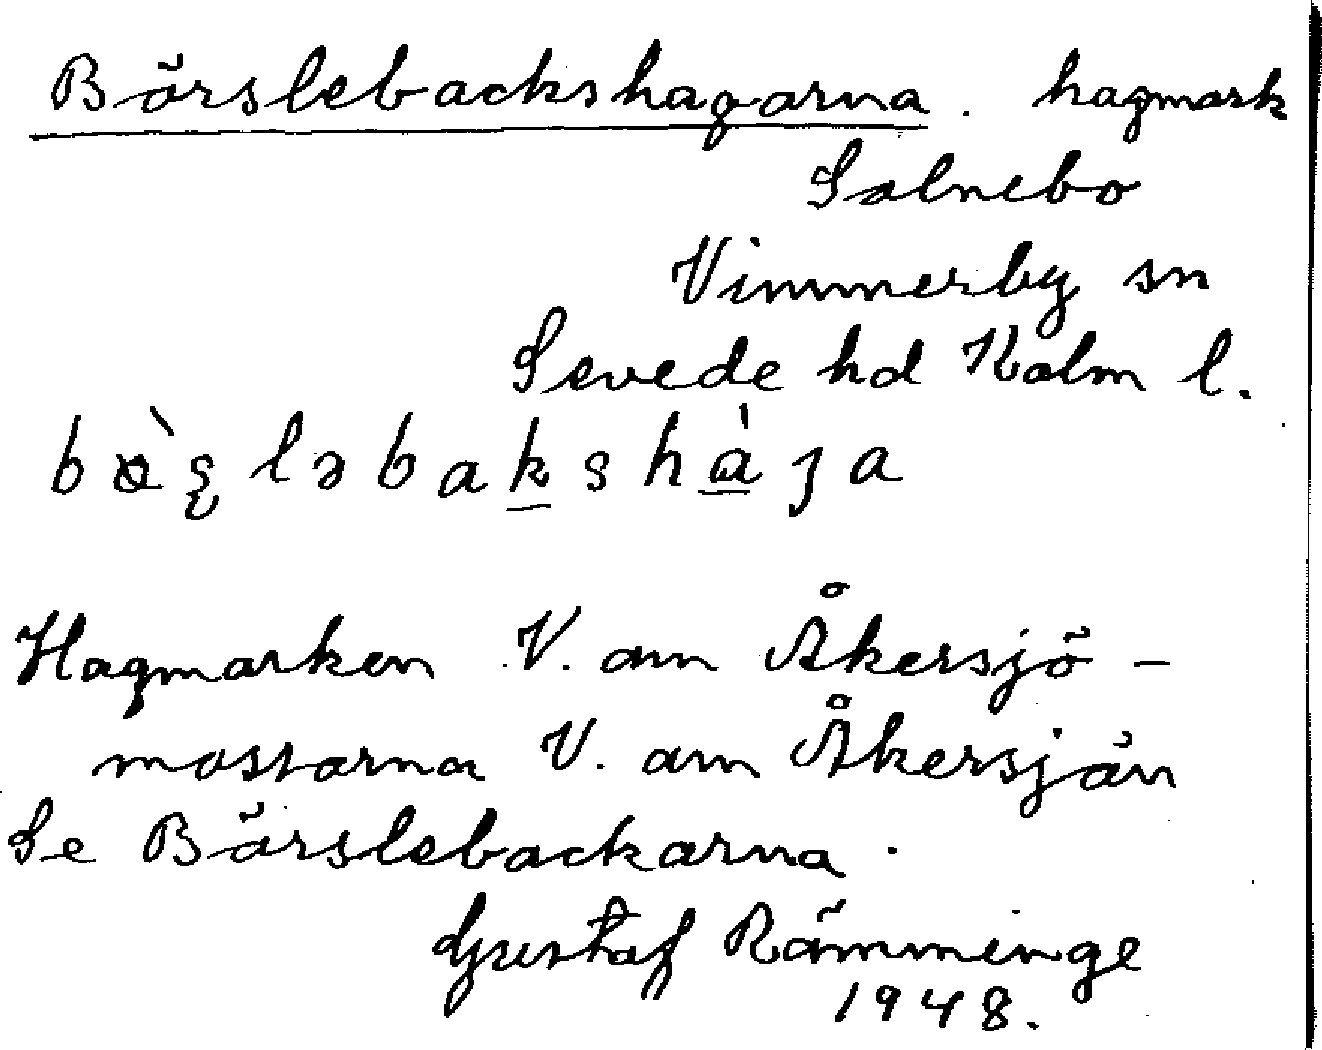 Börslebackshagarna. hagmark
Salnebo
Vimmerby sn
Sevede hd Kalm l.
Hagmarken V. om Åkersjö-
mossarna V. om Åkersjön
Se Börslebackarna.
Gustaf Rämminge
1948.